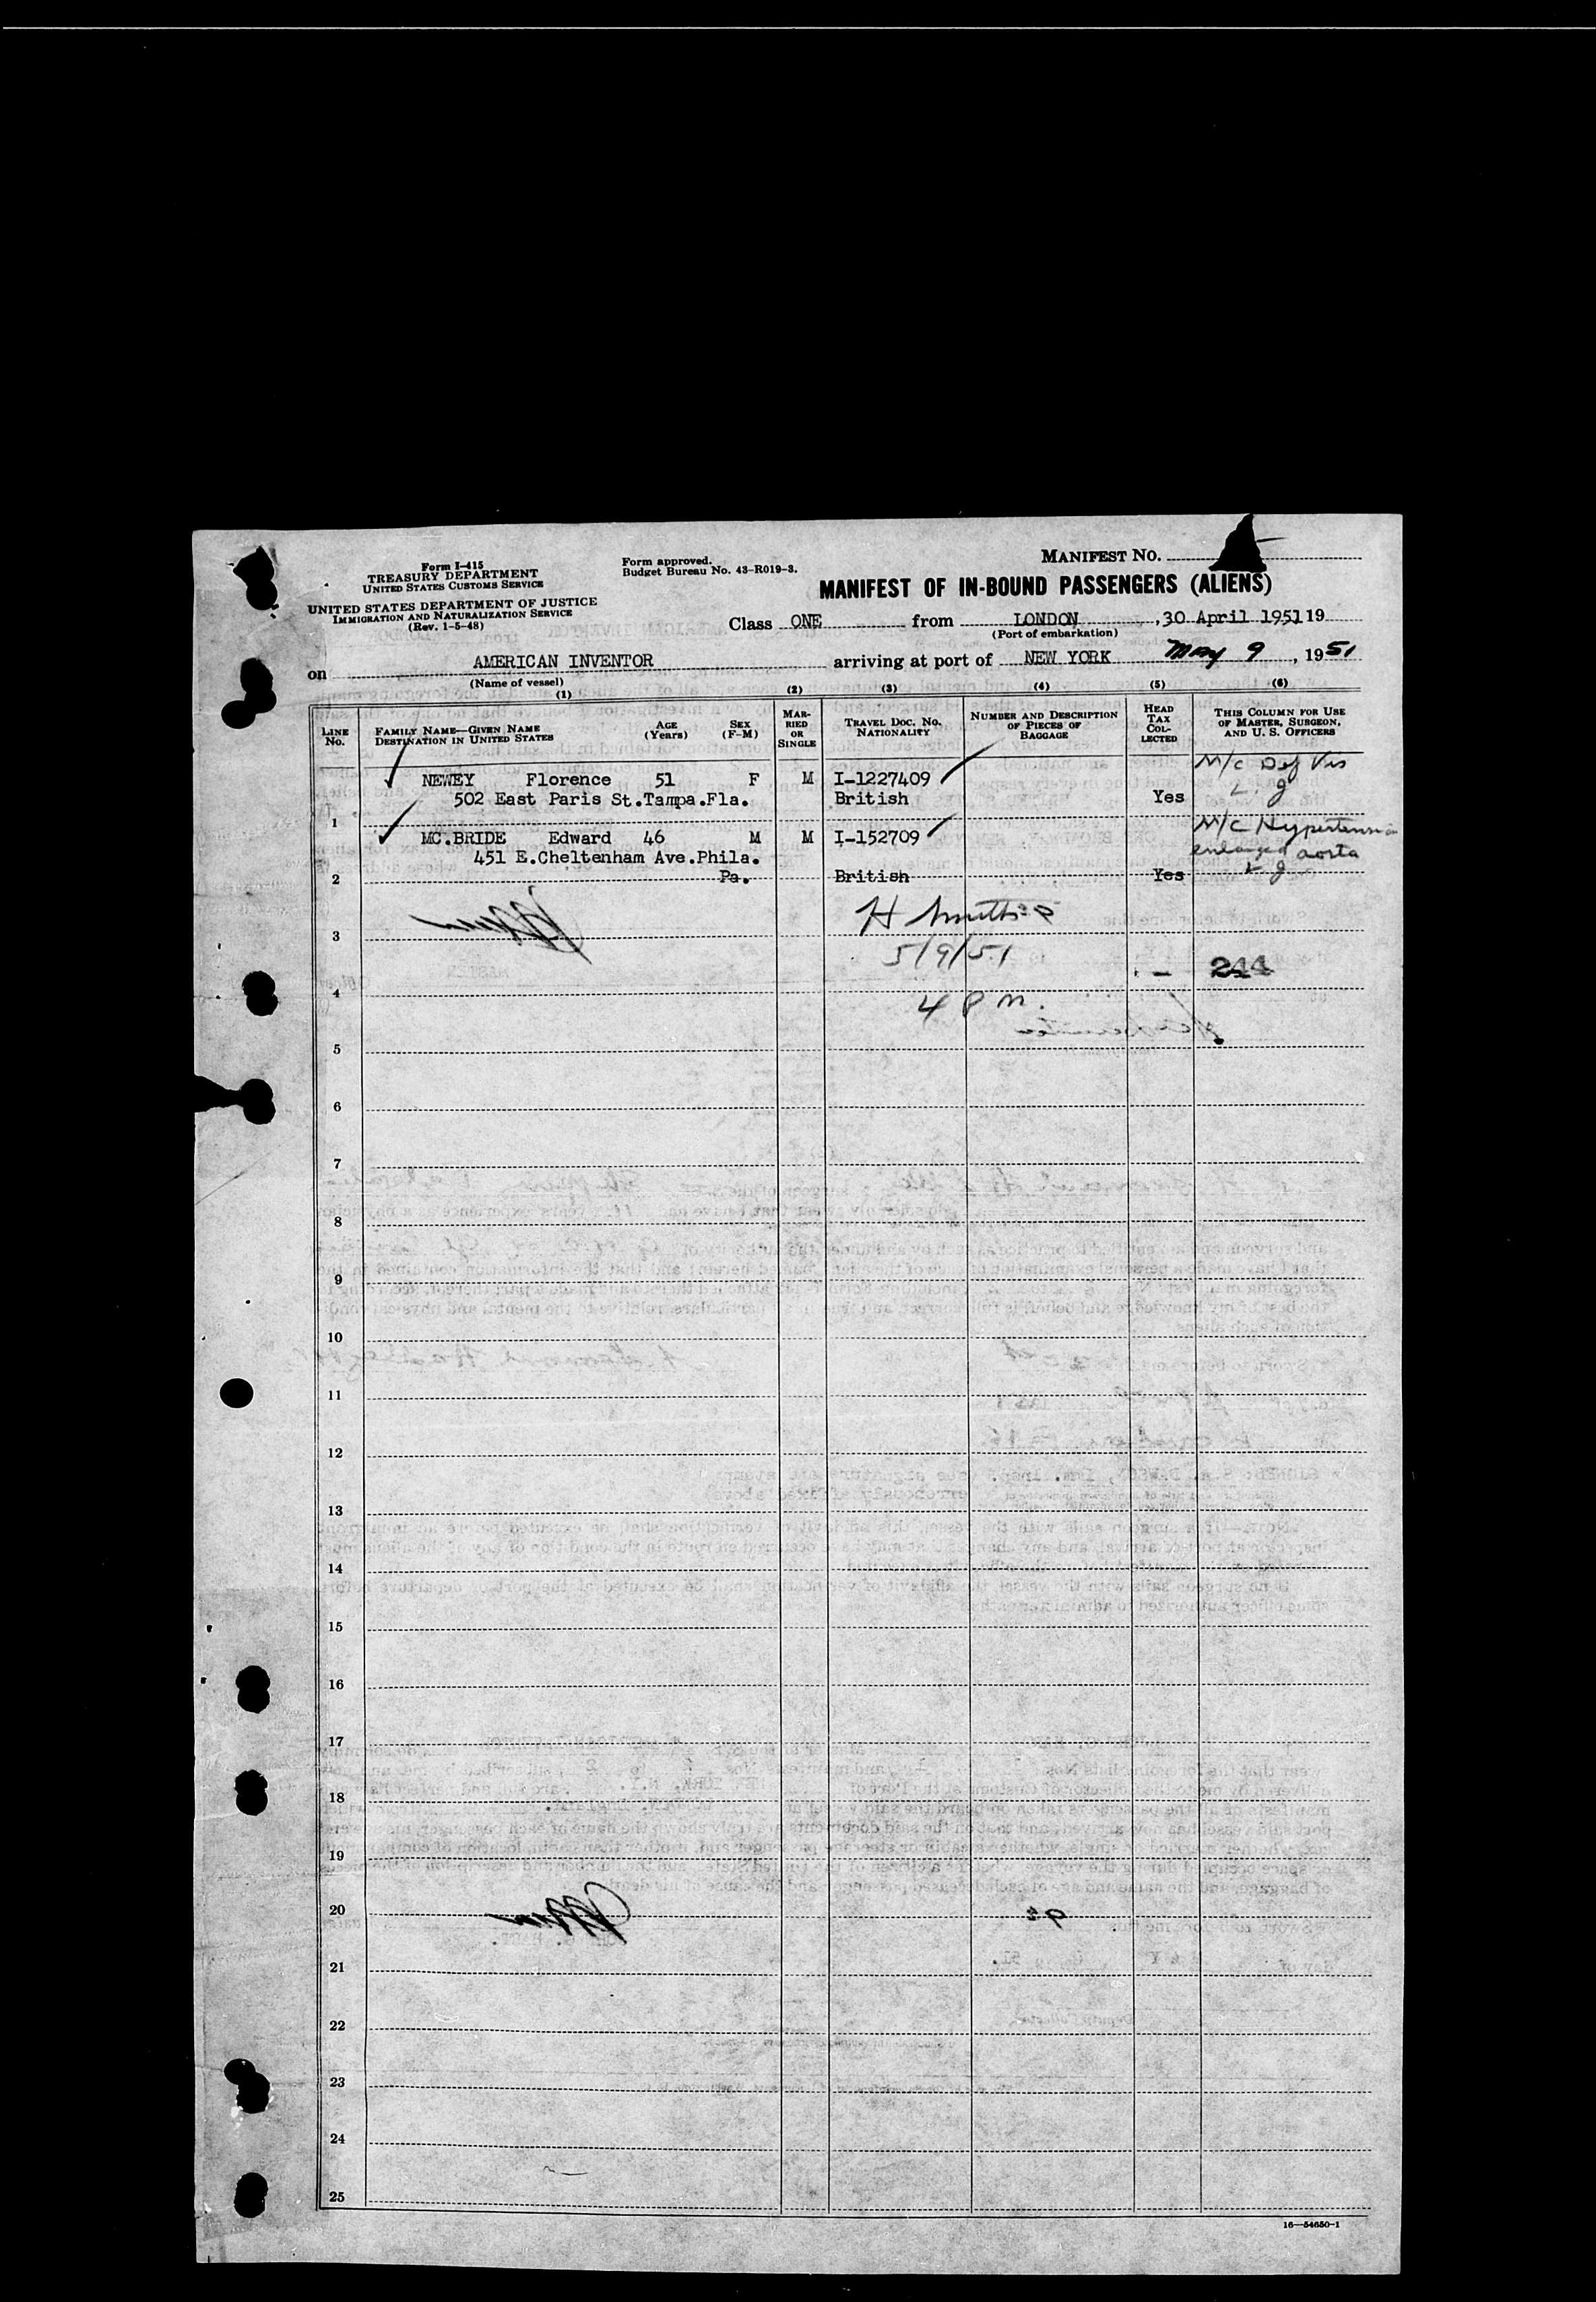 Form I-415
TREASURY DEPARTMENT
UNITED STATES CUSTOMS SERVICE
UNITED STATES DEPARTMENT OF JUSTICE
IMMIGRATION AND NATURALIZATION SERVICE
(Rev. 1-5-48)
Form approved.
Budget Bureau No. 43-R019-3.
MANIFEST NO.
MANIFEST OF IN-BOUND PASSENGERS (ALIENS)
Class ONE from LONDON, 30 April 1951 19
(Port of embarkation)
on AMERICAN INVENTOR arriving at port of NEW YORK May 9, 1951
(Name of vessel)
(1) (2) (3) (4) (5) (6)
LINE No.
FAMILY NAME—GIVEN NAME
DESTINATION IN UNITED STATES
AGE (Years)
SEX (F-M)
MARRIED OR SINGLE
TRAVEL DOC. NO.
NATIONALITY
NUMBER AND DESCRIPTION OF PIECES OF BAGGAGE
HEAD TAX COLLECTED
THIS COLUMN FOR USE OF MASTER, SURGEON, AND U. S. OFFICERS
NEWEY Florence 51 F M I-1227409 M/c Def Vis
502 East Paris St.Tampa.Fla. British Yes
1
MC.BRIDE Edward 46 M M I-152709 M/C Hypertension
451 E.Cheltenham Ave.Phila. enlarged aorta
2 Pa. British Yes
H Smith
3
5/9/51
244
4
4 P m.
5
6
7
8
9
10
11
12
13
14
15
16
17
18
19
20
21
22
23
24
25
16—54650-1